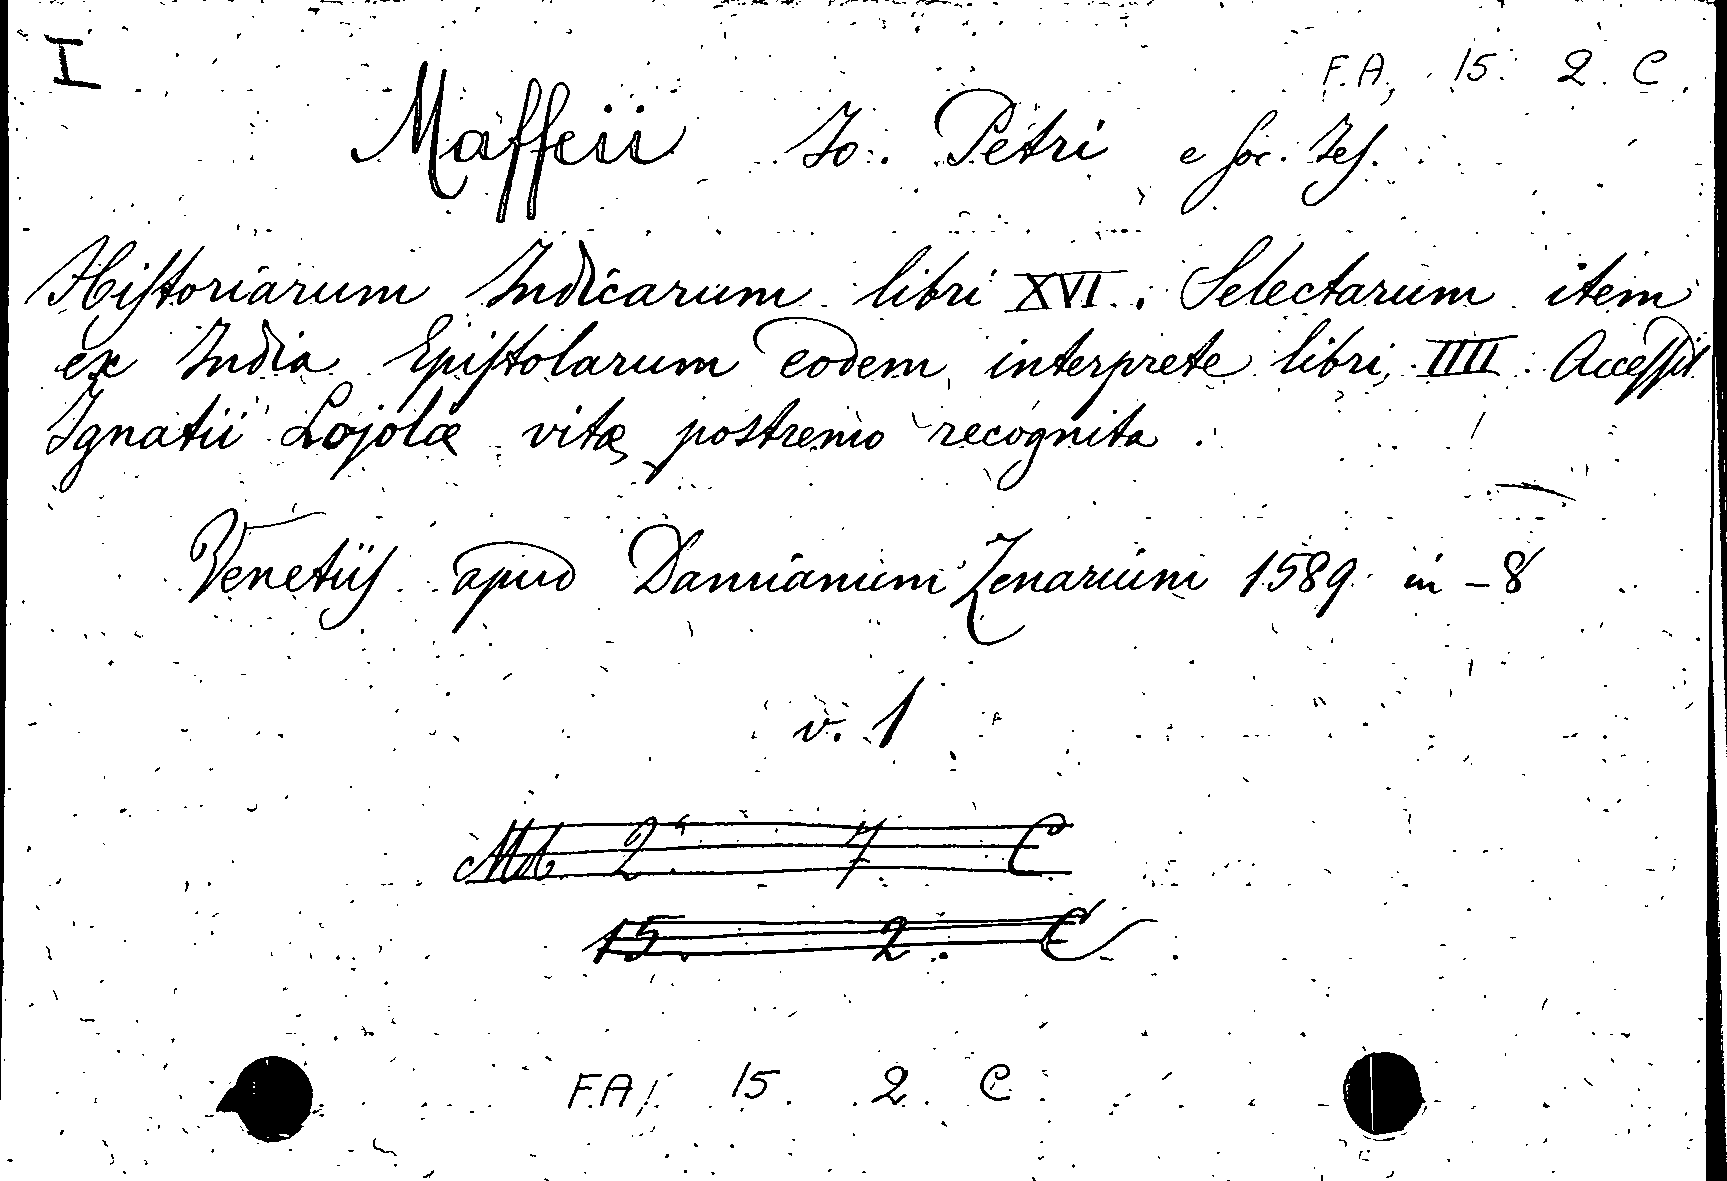 I
F.A. 15. 2. C.
Maffeii Jo. Petri e Soc. Jes.
Hiſtoriarum Indicarum libri XVI. Selectarum item
ex India Epiſtolarum eodem interprete libri IIII. Acceſſit
Ignatii Lojolæ vita postremo recognita.
Venetiis apud Damianum Zenarium 1589 in-8
v. 1
2 7 C
15. 2. C
F.A. 15. 2. C